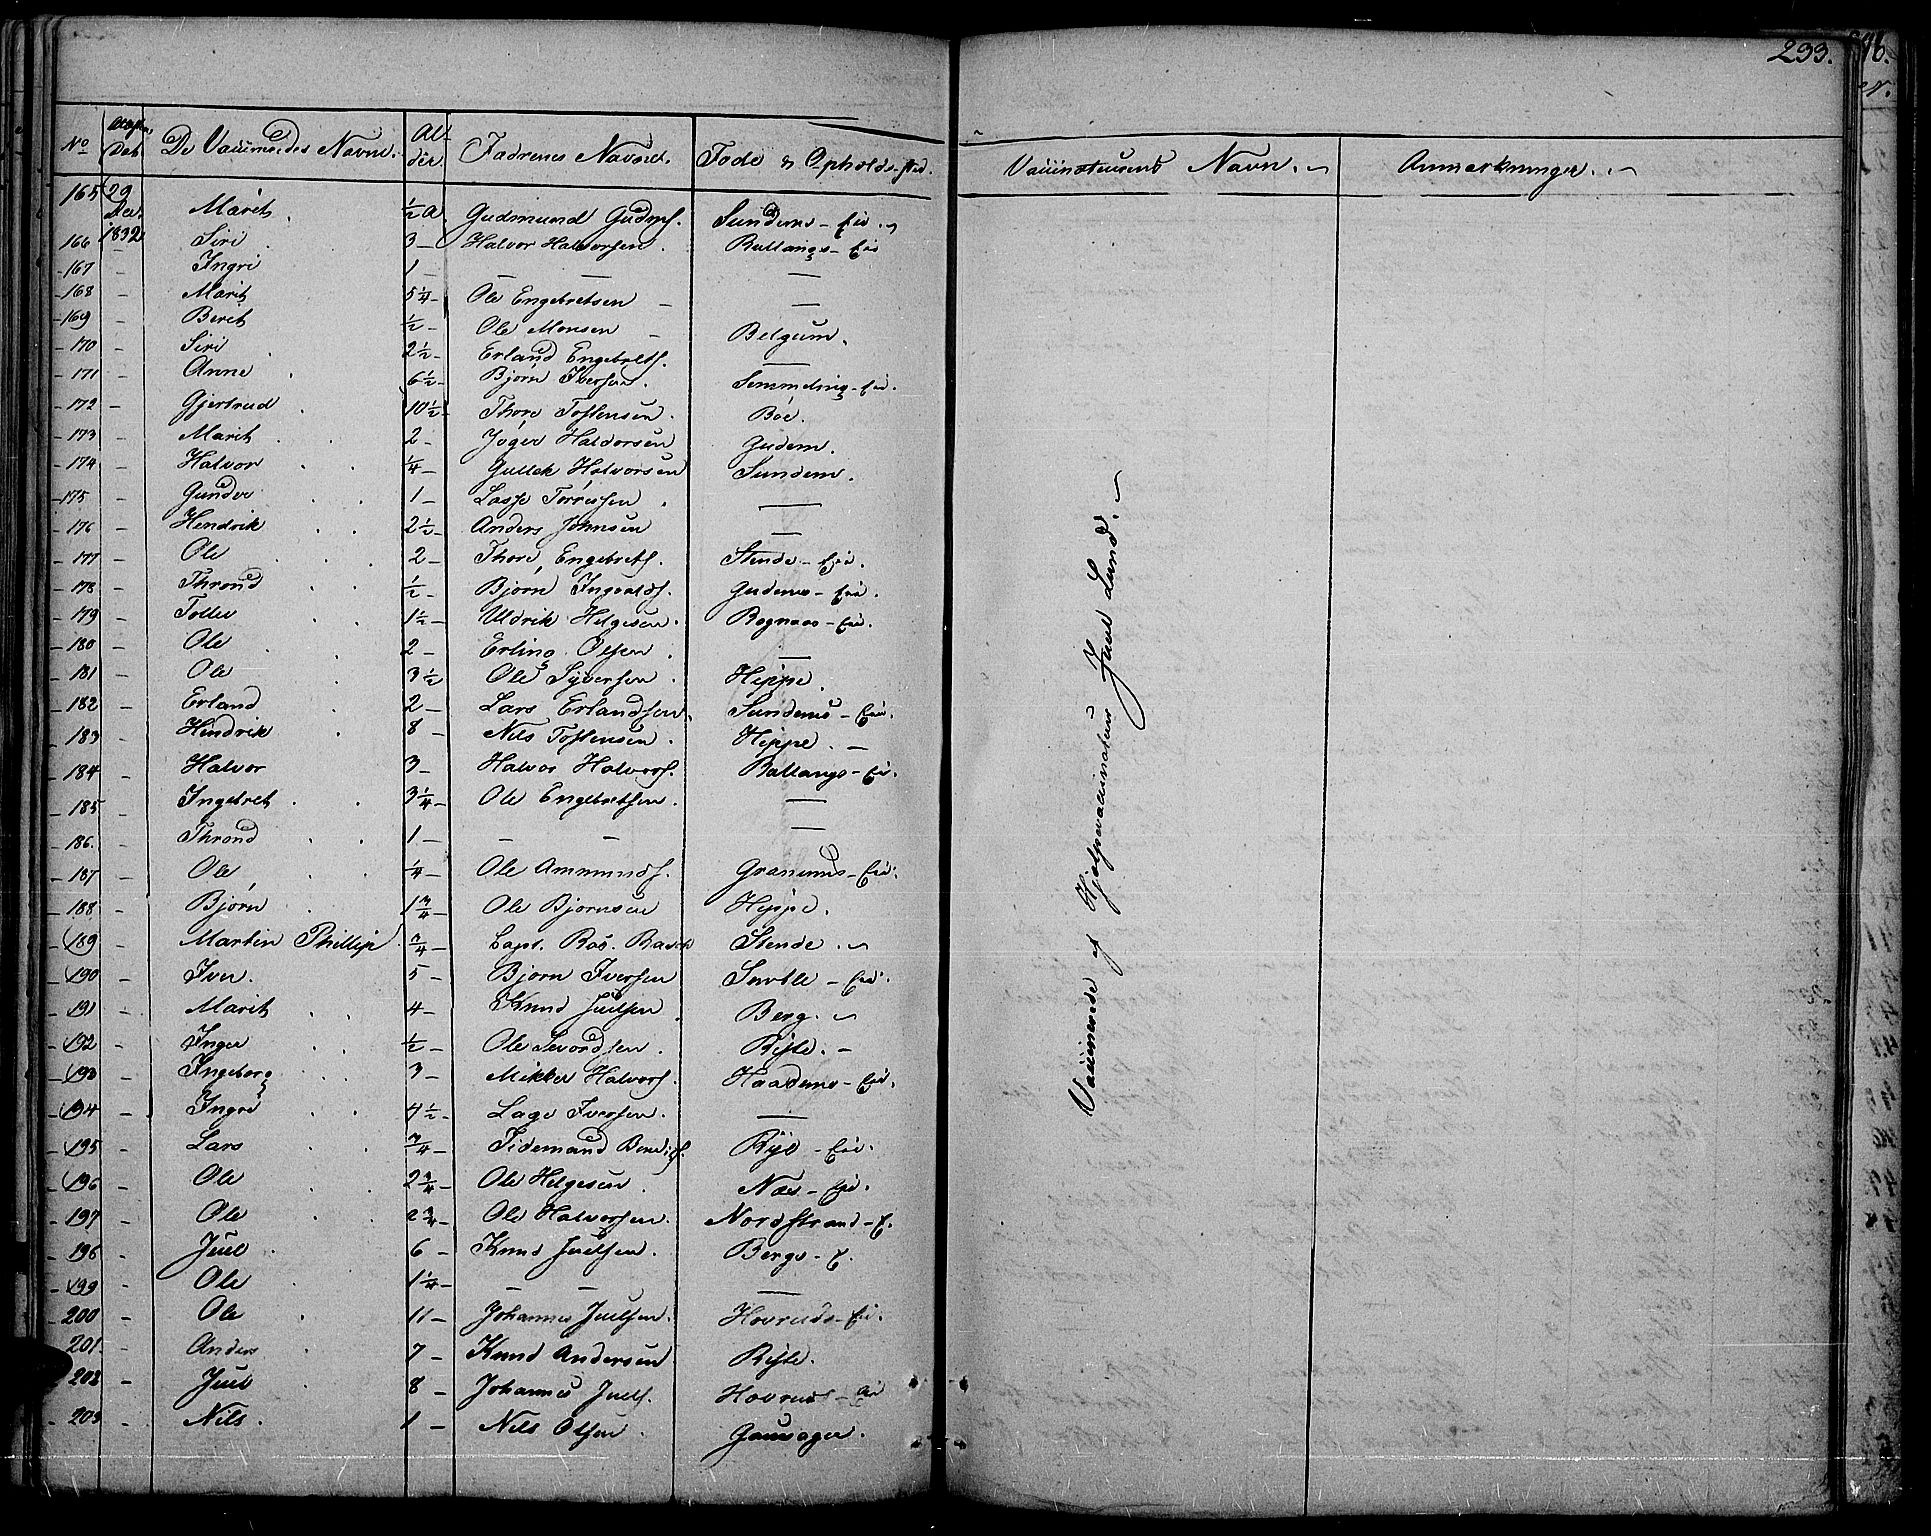 233.
No Attesten Dat De Vaccineredes Navne. Alder Fædrenes Navne. Føde og Opholds-sted. Vaccinateurens Navn. Anmærkninger.
165 29 Dec. 1832 Marit ½ A Gudmund Gudms. Sundems-Eie.
166 - Siri 3 - Halvor Halvorsen. Battangs-Eie
167 - Ingri 1 - — — —
168 - Marit 5¼ - Ole Engebretsen —
169 - Beret ½ - Ole Monsen Belgum.
170 - Siri 2½ - Erland Engebrets. —
171 - Anne 6½ - Bjørn Iversen. Semmeling-Eie.
172 - Gjertrud 10½ - Thore Tostensen. Bøe.
173 - Marit 2 - Haldorsen Gudem.
174 - Halvor ¼ - Gullek Halvorsen Sundem.
175 - Gunder 1 - Lasse —
176 - Hendrik 2½ - Anders Johnsen —
177 - Ole 2 - Thore Engebrets. Stende-Eie.
178 - Thrond ½ - Bjørn Ingvalds. Gudems-Eie.
179 - Tollev 1½ - Uldrik Helgesen. Rognaas-Eie.
180 - Ole 2 - Erling Olsen. —
181 - Ole 3½ Ole Syversen. Hippe.
182 - Erland 2 - Lars Erlandsen. Sundems-Eie.
183 - Hindrik 8 - Nils Tostensen. Hippe. -
184 - Halvor 3 - Halvor Halvors. Battangs-Eie.
185 - Ingebret 3¼ - Ole Engebretsen. —
186. - Thrond 1 - — — —
187 - Ole ¼ - Ole Ammunds. Granums-Eie.
188 - Bjørn 1¾ - Ole Bjørnsen Hippe.
189 - Martin Phillip ¾ - Capt. Ras. Stende.
190 - Iver. 5 - Bjørn Iversen - Eie.
191 - Marit 4 - Knud Juelsen Berg.
192 - Inger ½ - Ole Sevordsen. Riste. -
193 - Ingeborg 3 - Mikkel Halvors. Haadems-Eie.
194 - Ingri 4½ - Lage Iversen. —
195 - Lars ¾ - Tidemand - Eie.
196 - Ole 2¾ - Ole Helgesen. Næs-Eie.
197 - Ole 2¾ - Ole Halvorsen. Nordstrand-E.
196 - Juel. 6 - Knud Juelsen. Bergs-E.
199 - Ole 1¼ - — — —
200 - Ole 11 - Johannes Juelsen. Hovruds-Eie.
201. - Anders 7 - Knud Andersen Riste.
202 - Juel 8 - Johannes Juels. Hovruds-Eie
203 - Nils. 1 - Nils Olsen. Gausager.
Vaccinerede af Hjelpevaccinateur Juul Lund.